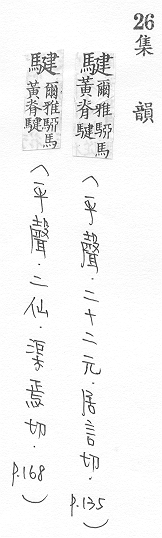 26 集韻
騝 爾雅駵馬黃脊騝 (平聲.二十二元.居言切. p.135)
騝 爾雅駵馬黃脊騝 (平聲.二仙.渠焉切. p.168)